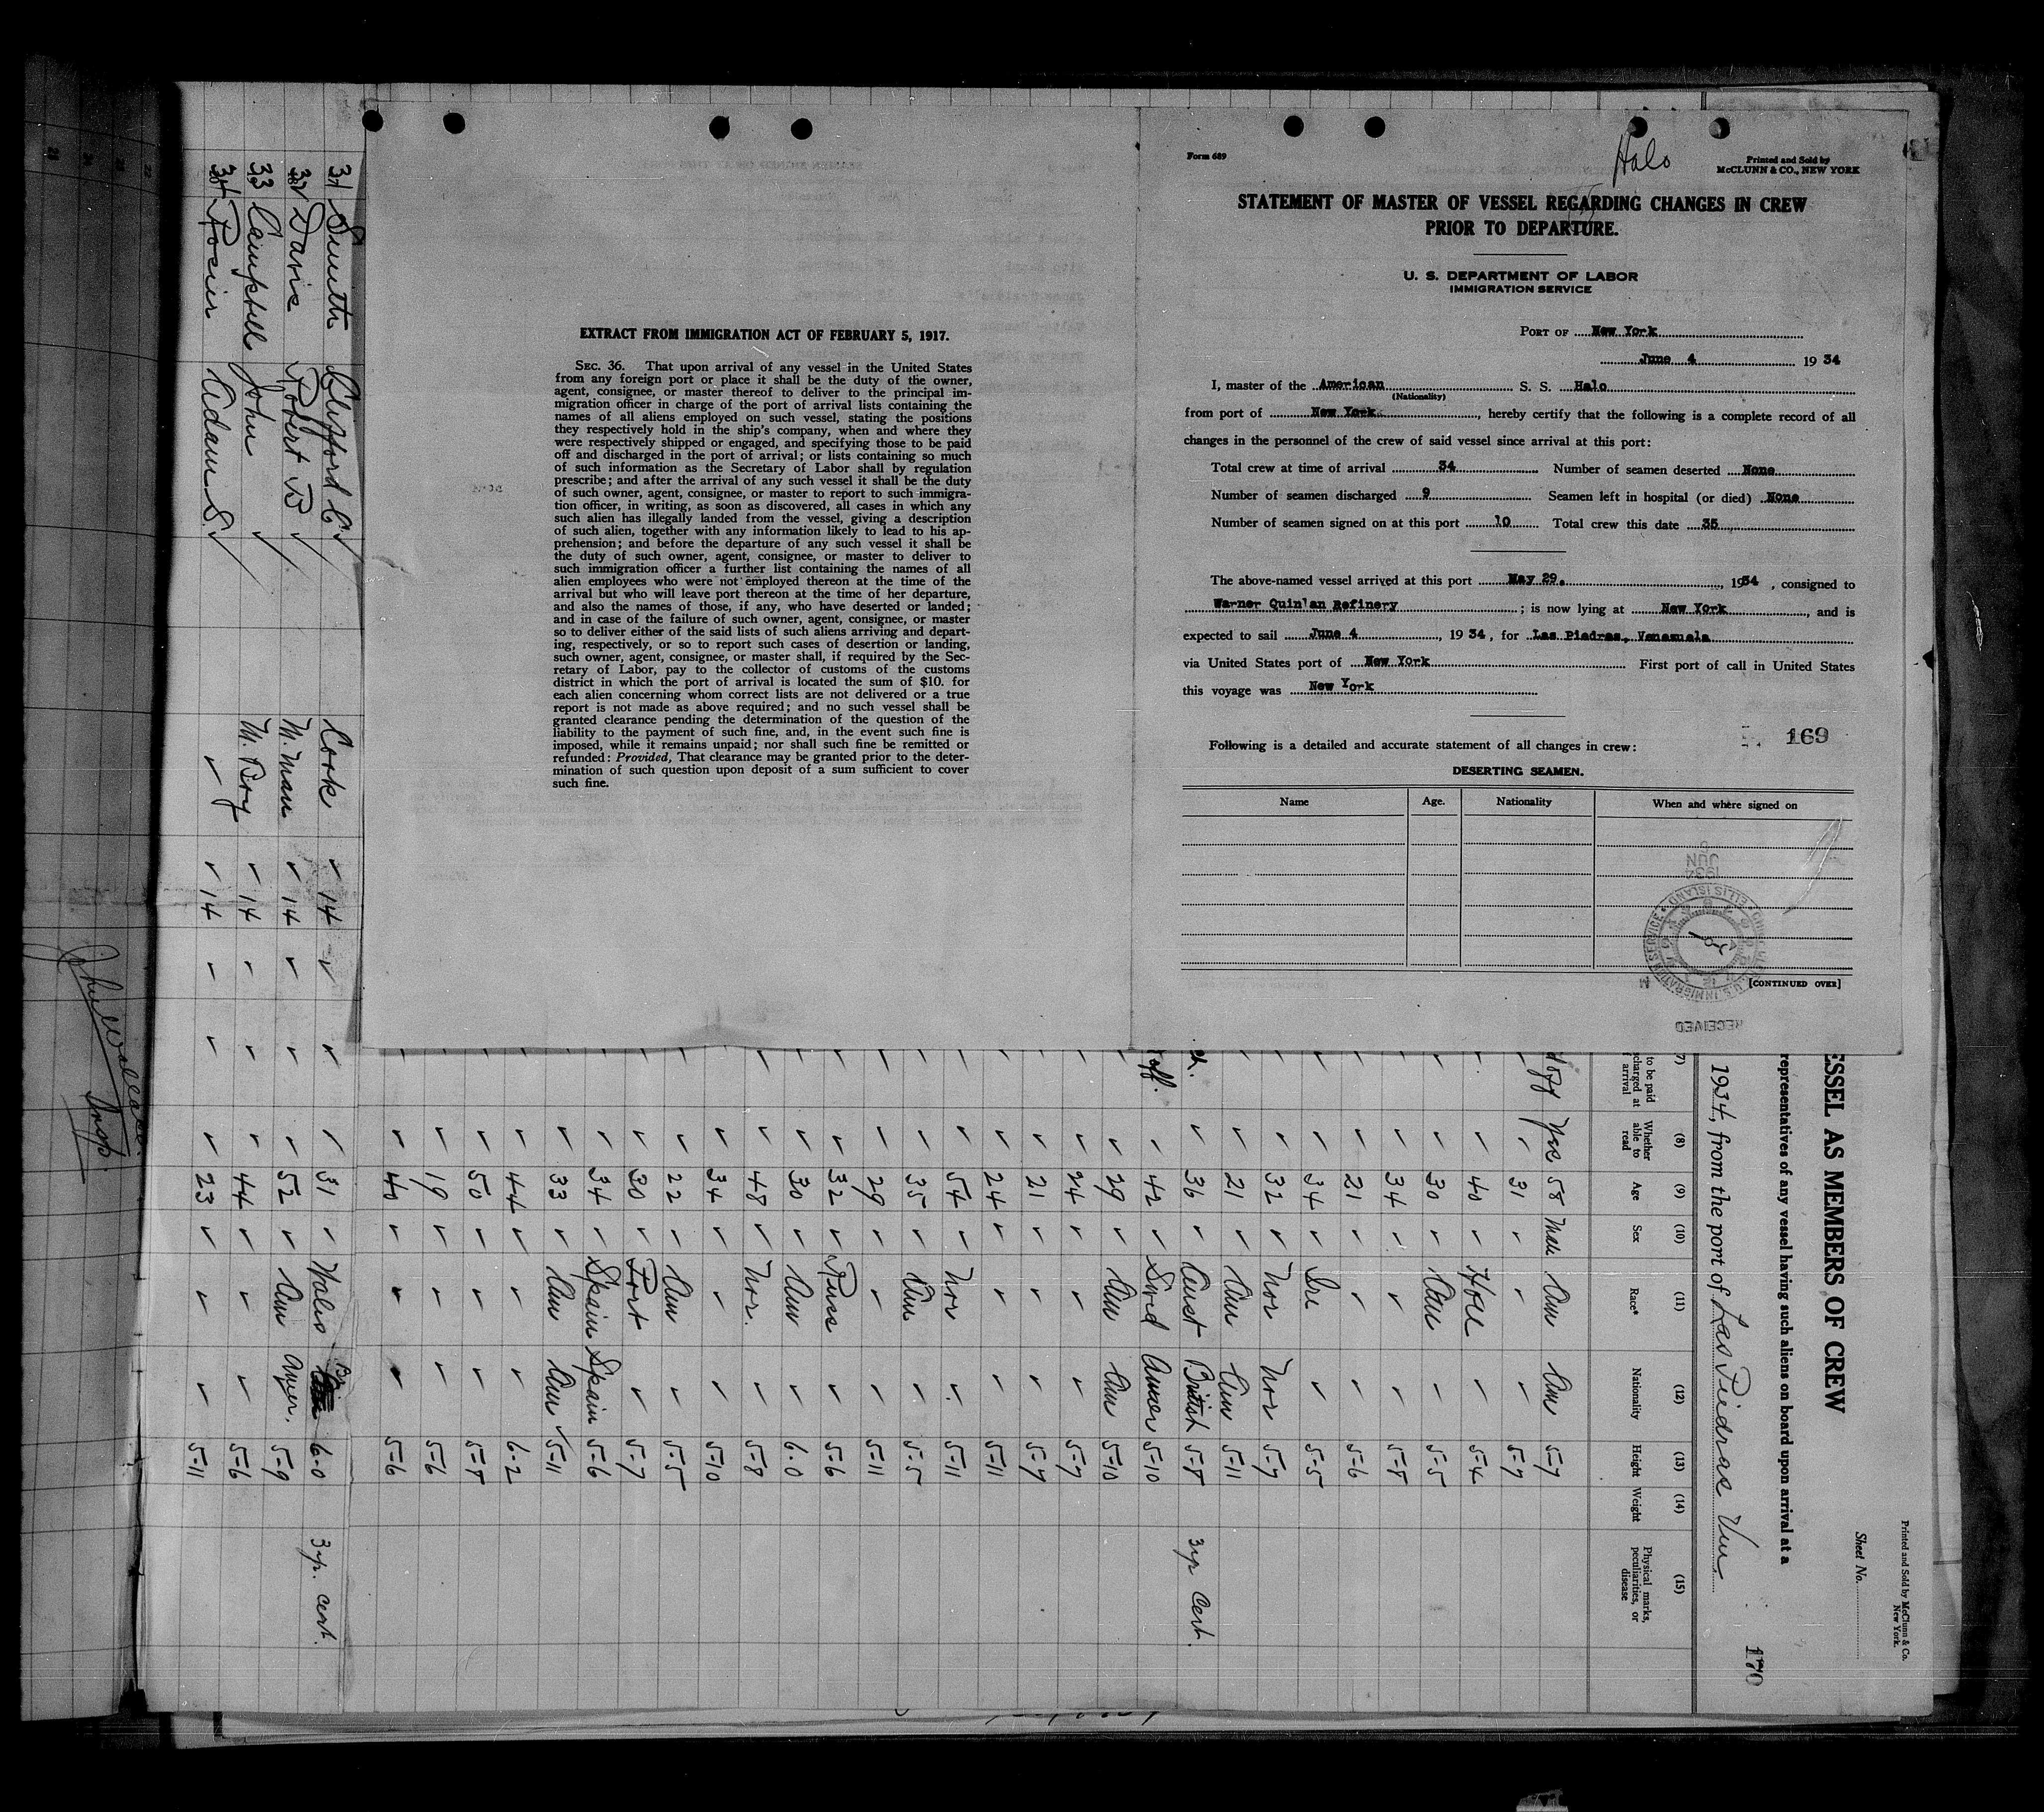 Form 689
Halo
Printed and Sold by
McCLUNN & CO., NEW YORK
STATEMENT OF MASTER OF VESSEL REGARDING CHANGES IN CREW
PRIOR TO DEPARTURE.
U. S. DEPARTMENT OF LABOR
IMMIGRATION SERVICE
PORT OF New York
June 4 1934
I, master of the American S. S. Halo
(Nationality)
from port of New York, hereby certify that the following is a complete record of all
changes in the personnel of the crew of said vessel since arrival at this port:
Total crew at time of arrival 34 Number of seamen deserted None
Number of seamen discharged 9 Seamen left in hospital (or died) None
Number of seamen signed on at this port 10 Total crew this date 35
The above-named vessel arrived at this port May 29, 1934, consigned to
Warner Quinlan Refinery; is now lying at New York, and is
expected to sail June 4, 1934, for Las Piedras, Venezuela
via United States port of New York First port of call in United States
this voyage was New York
169
Following is a detailed and accurate statement of all changes in crew:
DESERTING SEAMEN.
Name Age. Nationality When and where signed on
[CONTINUED OVER]
RECEIVED
EXTRACT FROM IMMIGRATION ACT OF FEBRUARY 5, 1917.
SEC. 36. That upon arrival of any vessel in the United States
from any foreign port or place it shall be the duty of the owner,
agent, consignee, or master thereof to deliver to the principal im-
migration officer in charge of the port of arrival lists containing the
names of all aliens employed on such vessel, stating the positions
they respectively hold in the ship's company, when and where they
were respectively shipped or engaged, and specifying those to be paid
off and discharged in the port of arrival; or lists containing so much
of such information as the Secretary of Labor shall by regulation
prescribe; and after the arrival of any such vessel it shall be the duty
of such owner, agent, consignee, or master to report to such immigra-
tion officer, in writing, as soon as discovered, all cases in which any
such alien has illegally landed from the vessel, giving a description
of such alien, together with any information likely to lead to his ap-
prehension; and before the departure of any such vessel it shall be
the duty of such owner, agent, consignee, or master to deliver to
such immigration officer a further list containing the names of all
alien employees who were not employed thereon at the time of the
arrival but who will leave port thereon at the time of her departure,
and also the names of those, if any, who have deserted or landed;
and in case of the failure of such owner, agent, consignee, or master
so to deliver either of the said lists of such aliens arriving and depart-
ing, respectively, or so to report such cases of desertion or landing,
such owner, agent, consignee, or master shall, if required by the Sec-
retary of Labor, pay to the collector of customs of the customs
district in which the port of arrival is located the sum of $10. for
each alien concerning whom correct lists are not delivered or a true
report is not made as above required; and no such vessel shall be
granted clearance pending the determination of the question of the
liability to the payment of such fine, and, in the event such fine is
imposed, while it remains unpaid; nor shall such fine be remitted or
refunded: Provided, That clearance may be granted prior to the deter-
mination of such question upon deposit of a sum sufficient to cover
such fine.
Printed and Sold by McClunn & Co.
New York.
Sheet No.
170
ESSEL AS MEMBERS OF CREW
representatives of any vessel having such aliens on board upon arrival at a
1934, from the port of Las Piedras Ven.
(8) (9) (10) (11) (12) (13) (14) (15)
to be paid
Whether able to read Age Sex Race* Nationality Height Weight Physical marks, peculiarities, or disease
Yes 58 Male Am Am 5-7
31 5-7
40 Holl 5-4
30 Am 5-5
34 5-8
21 5-6
34 Ire 5-5
32 Nor Nor 5-7
21 Am Am 5-11
36 Aust British 5-8 3 yp Cert.
off. 42 Swed Amer 5-10
29 Am Am 5-10
24 5-7
21 5-7
24 5-11
54 Nor 5-11
35 Am 5-5
29 5-11
32 Russ 5-6
30 Am 6-0
48 Nor. 5-8
34 5-10
22 Am 5-5
30 Port 5-7
34 Spain Spain 5-6
33 Am Am 5-11
44 6-2
50 5-8
19 5-6
40 5-6
31 Smith Clifford C Cook 14 31 Wales Br 6-0 3 yp. cert.
32 Davis Robert B M. Man 14 52 Am Amer. 5-9
33 Campbell John M. Boy 14 44 5-6
34 Adam S. 14 23 5-11
John Wallace
Insp.